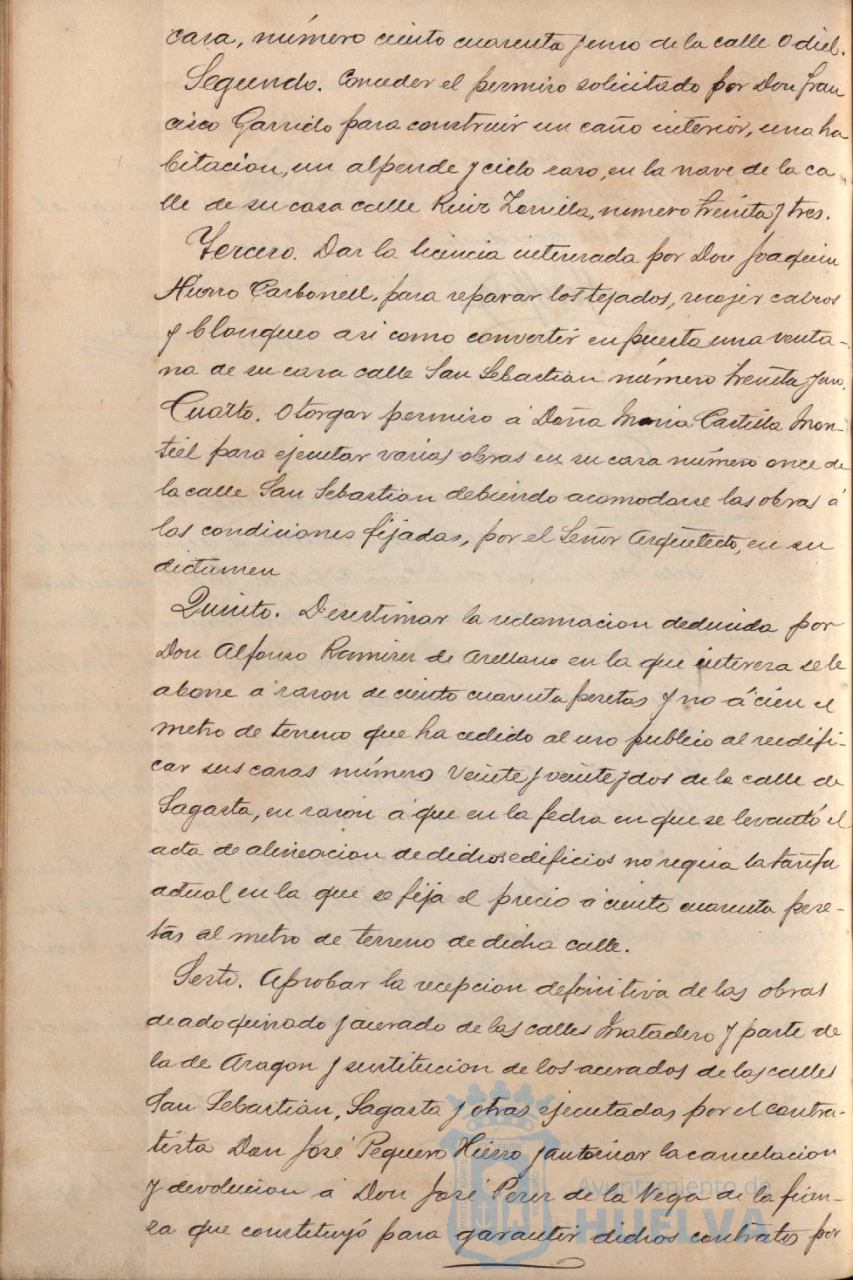 casa, número ciento cuarenta y uno de la calle Odiel.
Segundo. Conceder el permiso solicitado por Don Fran
cisco Garrido para construir un caño interior, una ha
bitacion, un alpende y cielo raso, en la nave de la ca
lle de su casa calle Ruiz Zorrilla, número treinta y tres.
Tercero. Dar la licencia interesada por Don Joaquin
Hierro Carbonell, para reparar los tejados, recojer cabros
y blanqueo asi como convertir en puerta una venta-
na de su casa calle San Sebastián número treinta y uno.
Cuarto. Otorgar permiso á Doña Maria Castilla Mon-
tiel para ejecutar varias obras en su casa número once de
la calle San Sebastian debiendo acomodarse las obras á
las condiciones fijadas, por el Señor Arquitecto, en su
dictamen
Quinto. Desestimar la reclamacion deducida por
Don Alfonso Ramirez de Arellano en la que interesa se le
abone á razon de ciento cuarenta pesetas y no á cien el
metro de terreno que ha cedido al uso publico al reedifi-
car sus casas número veinte y veinte y dos de la calle de
Sagasta, en razón á que en la fecha en que se levantó el
acta de alineacion de dichos edificios no regia la tarifa
actual en la que se fija el precio á ciento cuarenta pese-
tas al metro de terreno de dicha calle.
Sesto. Aprobar la recepcion definitiva de las obras
de adoquinado y acerado de las calles Matadero y parte de
la de Aragon y sustitucion de los acerados de las calles
San Sebastián, Sagasta y otras ejecutadas por el contra-
tista Don José Peguero Hierro y autorizar la cancelacion
y devolucion á Don José Perez de la Vega de la fian-
za que constituyó para garantir dichos contratos por
Ayuntamiento de
HUELVA